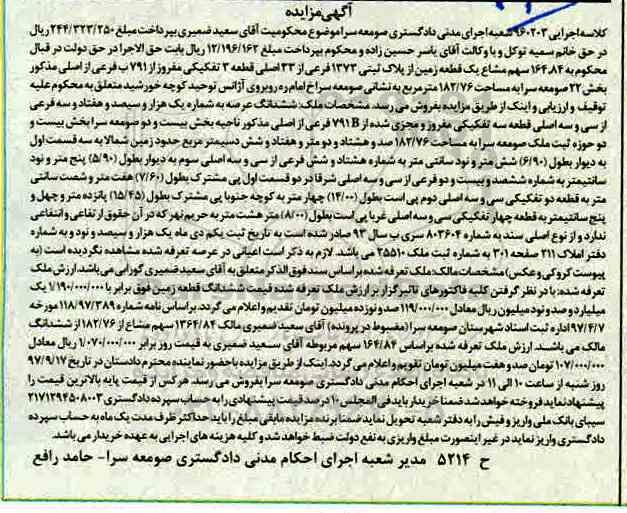 آگهی مزایده
کلاسه اجرایی ۹۶۰۲۰۳ شعبه اجرای مدنی دادگستری صومعه سرا موضوع محکومیت آقای سعید ضمیری بپرداخت مبلغ ۲۴۴/۳۲۳/۲۵۰ ریال
در حق خانم سمیه توکل و با وکالت آقای یاسر حسین زاده و محکوم بپرداخت مبلغ ۱۲/۱۹۶/۱۶۲ ریال بابت حق الاجرا در حق دولت در قبال
محکوم به ۱۶۴.۸۴ سهم مشاع یک قطعه زمین از پلاک ثبتی ۱۳۷۳ فرعی از ۳۳ اصلی قطعه ۳ تفکیکی مفروز از ۷۹۱ ب فرعی از اصلی مذکور
بخش ۲۲ صومعه سرا به مساحت ۱۸۲/۷۶ متر مربع به نشانی صومعه سرا خ امام ره روبروی آژانس توحید کوچه خورشید متعلق به محکوم علیه
توقیف و ارزیابی و اینک از طریق مزایده بفروش می رسد. مشخصات ملک: ششدانگ عرصه به شماره یک هزار و سیصد و هفتاد و سه فرعی
از سی و سه اصلی قطعه سه تفکیکی مفروز و مجزی شده از ۷۹۱B فرعی از اصلی مذکور ناحیه بخش بیست و دو صومعه سرا بخش بیست و
دو حوزه ثبت ملک صومعه سرا به مساحت ۱۸۲/۷۶ صد و هشتاد و دو متر و هفتاد و شش دسیمتر مربع حدود زمین شمالا به سه قسمت اول
به دیوار بطول (۶/۹۰) شش متر و نود سانتی متر به شماره هشتاد و شش فرعی از سی و سه اصلی سوم به دیوار بطول (۵/۹۰) پنج متر و نود
سانتیمتر به شماره ششصد و بیست و دو فرعی از سی و سه اصلی شرقا در دو قسمت اول پی مشترک بطول (۷/۶۰) هفت متر و شصت سانتی
متر به قطعه دو تفکیکی سی و سه اصلی دوم پی است بطول (۱۴/۰۰) چهار متر به کوچه جنوبا پی مشترک بطول (۱۵/۴۵) پانزده متر و چهل و
پنج سانتیمتر به قطعه چهار تفکیکی سی و سه اصلی غربا پی است بطول (۸/۰۰) متر هشت متر به حریم نهر که در آن حقوق ارتفاعی و انتفاعی
ندارد و از نوع اصلی سند به شماره ۸۰۳۶۰۴ سری ب سال ۹۳ صادر شده است به تاریخ ثبت یکم دی ماه یک هزار و سیصد و نود و به شماره
دفتر املاک ۲۱۱ صفحه ۳۰۱ به شماره ثبت ملک ۲۵۵۱۰ می باشد. لازم به ذکر است اعیانی در عرصه تعرفه شده مشاهده نگردیده است (به
پیوست کروکی و عکس) مشخصات مالک: ملک تعرفه شده بر اساس سند فوق الذکر متعلق به آقای سعید ضمیری گورابی می باشد. ارزش ملک
تعرفه شده: با در نظر گرفتن کلیه فاکتورهای تاثیرگزار بر ارزش ملک تعرفه شده قیمت ششدانگ قطعه زمین فوق برابر با ۱/۱۹۰/۰۰۰/۰۰۰ یک
میلیارد و صد و نود میلیون ریال معادل ۱۱۹/۰۰۰/۰۰۰ صد و نوزده میلیون تومان تقدیم و اعلام می گردد. بر اساس نامه شماره ۱۱۸/۹۷/۳۸۹ مورخه
۹۷/۴/۷ اداره ثبت اسناد شهرستان صومعه سرا (مضبوط در پرونده) آقای سعید ضمیری مالک ۱۳۶۴/۸۴ سهم مشاع از ۱۸۲/۷۶ از ششدانگ
مالک می باشند. ارزش ملک تعرفه شده بر اساس ۱۶۴/۸۴ سهم مربوطه آقای سعیدی ضمیری به قیمت روز برابر ۱/۰۷۰/۰۰۰/۰۰۰ ریال معادل
۱۰۷/۰۰۰/۰۰۰ تومان صد و هفت میلیون تومان تقویم و اعلام می گردد. اینک از طریق مزایده با حضور نماینده محترم دادستان در تاریخ ۹۷/۹/۱۷
روز شنبه از ساعت ۱۰ الی ۱۱ در شعبه اجرای احکام مدنی دادگستری صومعه سرا بفروش می رسد. هر کس از قیمت پایه بالاترین قیمت را
پیشنهاد نماید فروخته خواهد شد ضمنا خریدار باید فی المجلس ۱۰ درصد قیمت پیشنهادی را به حساب سپرده دادگستری ۲۱۷۱۲۹۴۵۰۸۰۰۳
سیبای بانک ملی واریز و فیش را به دفتر شعبه تحویل نماید ضمنا برنده مزایده مابقی مبلغ را باید حداکثر ظرف مدت یک ماه به حساب سپرده
دادگستری واریز نماید در غیر اینصورت مبلغ واریزی به نفع دولت ضبط خواهد شد و کلیه هزینه های اجرایی به عهده خریدار می باشد.
ح ۵۲۱۴ مدیر شعبه اجرای احکام مدنی دادگستری صومعه سرا- حامد رافع